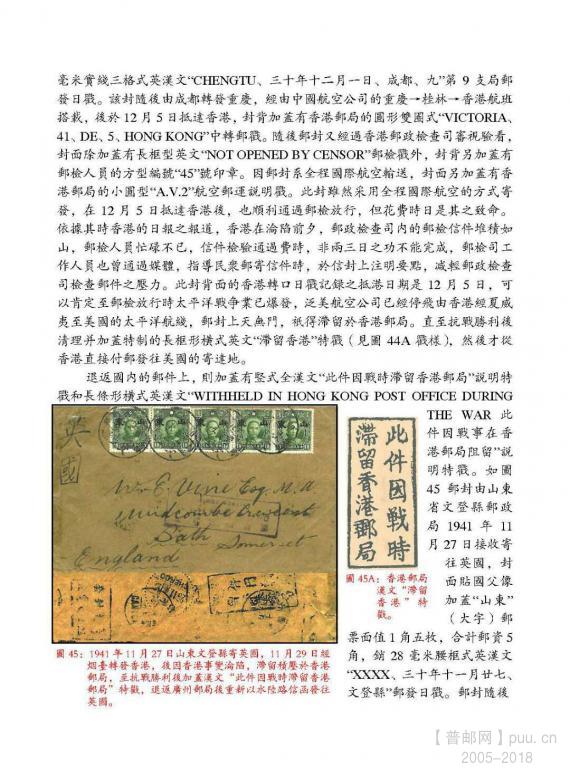 毫米實綫三格式英漢文“CHENGTU、三十年十二月一日、成都、九”第 9 支局郵
發日戳。該封隨後由成都轉發重慶，經由中國航空公司的重慶→桂林→香港航班
搭載，後於 12 月 5 日抵達香港，封背加蓋有香港郵局的圓形雙圈式“VICTORIA、
41、DE、5、HONG KONG”中轉郵戳。隨後郵封又經過香港郵政檢查司審視驗看，
封面除加蓋有長框型英文“NOT OPENED BY CENSOR”郵檢戳外，封背另加蓋有
郵檢人員的方型編號“45”號印章。因郵封系全程國際航空輸送，封面另加蓋有香
港郵局的小圓型“A.V.2”航空郵運說明戳。此封雖然采用全程國際航空的方式寄
發，在 12 月 5 日抵達香港後，也順利通過郵檢放行，但花費時日是其之致命。
依據其時香港的日報之報道，香港在淪陷前夕，郵政檢查司内的郵檢信件堆積如
山，郵檢人員忙碌不已，信件檢驗通過費時，非兩三日之功不能完成，郵檢司工
作人員也曾通過媒體，指導民衆郵寄信件時，於信封上注明要點，减輕郵政檢查
司檢查郵件之壓力。此封背面的香港轉口日戳記録之抵港日期是 12 月 5 日，可
以肯定至郵檢放行時太平洋戰争業已爆發，泛美航空公司已經停飛由香港經夏威
夷至美國的太平洋航綫，郵封上天無門，祇得滯留於香港郵局。直至抗戰勝利後
清理并加蓋特制的長框形橫式英文“滯留香港”特戳（見圖 44A 戳樣），然後才從
香港直接付郵發往美國的寄達地。
退返國内的郵件上，則加蓋有竪式全漢文“此件因戰時滯留香港郵局”説明特
戳和長條形橫式英漢文“WITHHELD IN HONG KONG POST OFFICE DURING
THE WAR 此
件因戰事在香
港郵局阻留”說
明特戳。如圖
45 郵封由山東
省文登縣郵政
局 1941 年 11
月 27 日接收寄
往英國，封
面貼國父像
加蓋“山東”
（大字）郵
票面值 1 角五枚，合計郵資 5
角，銷 28 毫米腰框式英漢文
“XXXX、三十年十一月廿七、
文登縣”郵發日戳。郵封隨後
英國
England
此件因戰時
滯留香港郵局
圖 45A：香港郵局
漢文“滯留
香港”特
戳。
圖 45：1941 年 11 月 27 日山東文登縣寄英國，11 月 29 日經
烟臺轉發香港，後因香港事變淪陷，滯留積壓於香港
郵局，至抗戰勝利後加蓋漢文“此件因戰時滯留香港
郵局”特戳，退返廣州郵局後重新以水陸路信函發往
英國。
【普邮网】puu.cn
2005–2018